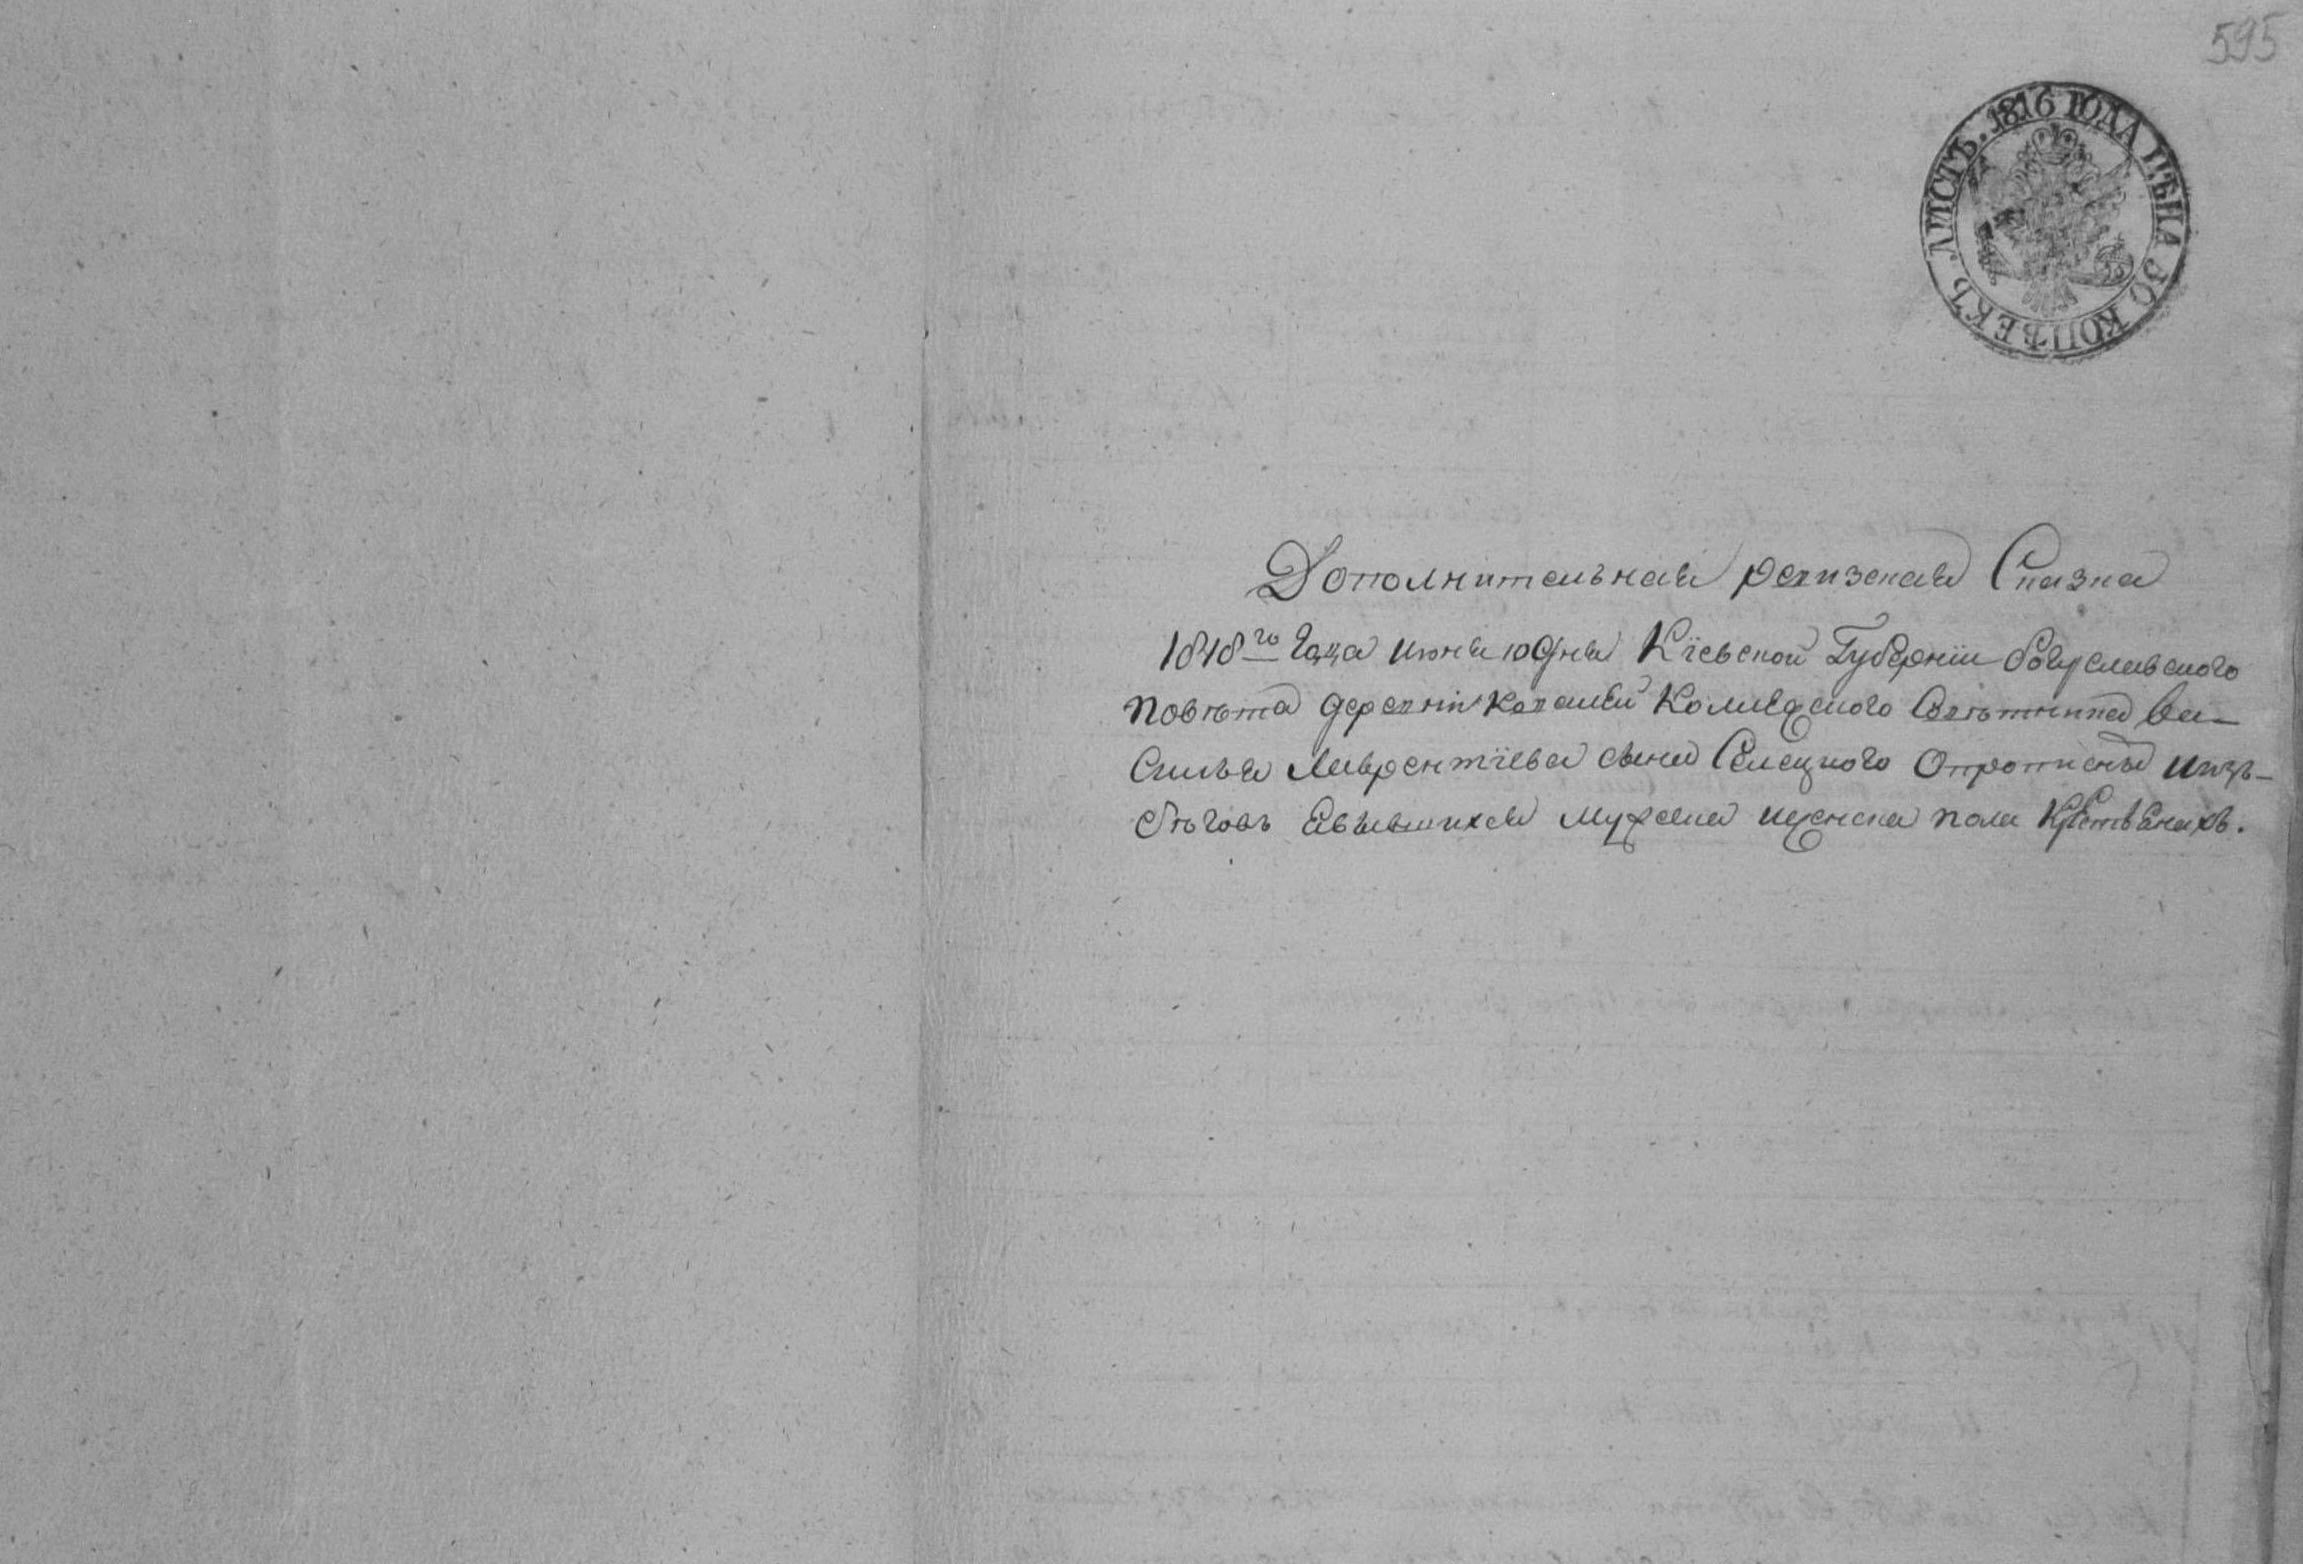 595
ЛИСТЪ. 1816 ГОДА ЦѢНА 50 КОПѢЕКЪ.
Дополнительная ревизская Сказка
1818го Года июня 10 дня Кіевской Губерніи богуславского
повѣта деревни Коллежского Совѣтника Ва-
силья Лаврентіева сына Селецкого О прописных изъ
бѣговъ явившихся мужска и женска пола крестьянахъ.